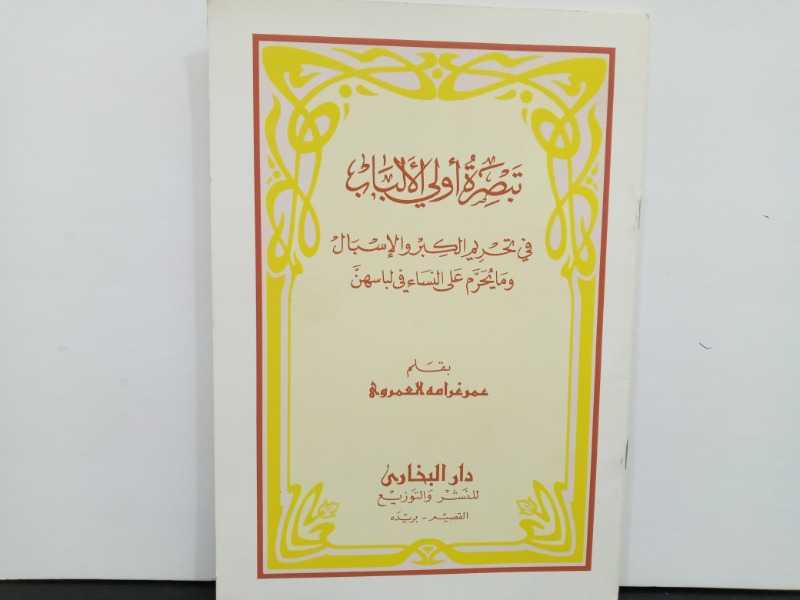 تبصرة أولي الألباب
في تحريم الكبر والإسبال
وما يُحَرَّم على النساء في لباسهنّ
بقلم
عمر غرامه العمروي
دار البخاري
للنشر والتوزيع
القصيم - بريده